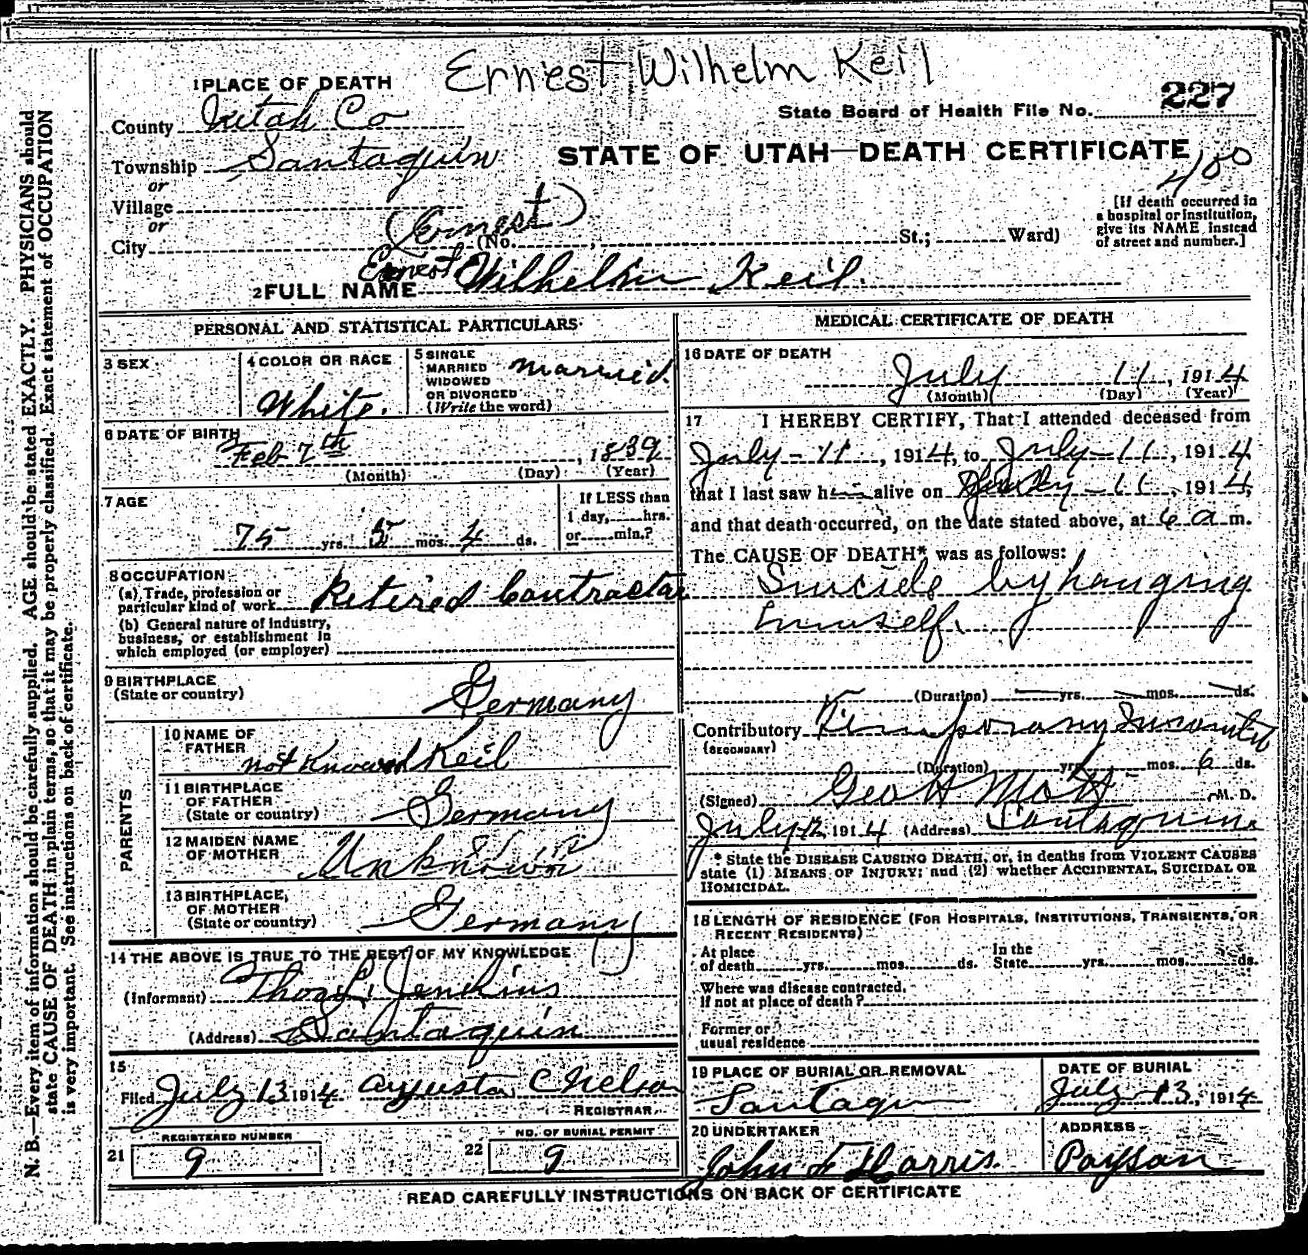 Ernest Wilhelm Keil
1 PLACE OF DEATH
County Utah Co
Township Santaquin
or
Village
or
City
State Board of Health File No. 227
STATE OF UTAH—DEATH CERTIFICATE
400
[If death occurred in
a hospital or institution,
give its NAME instead
of street and number.]
(Ernest)
(No. St.; Ward)
2 FULL NAME Ernest Wilhelm Keil.
PERSONAL AND STATISTICAL PARTICULARS
3 SEX
4 COLOR OR RACE
White.
5 SINGLE
MARRIED
WIDOWED
OR DIVORCED
(Write the word)
Married.
6 DATE OF BIRTH
Feb 7th, 1839
(Month) (Day) (Year)
7 AGE
75 yrs. 5 mos. 4 ds.
If LESS than
1 day, hrs.
or min.?
8 OCCUPATION
(a) Trade, profession or
particular kind of work Retired Contractor
(b) General nature of industry,
business, or establishment in
which employed (or employer)
9 BIRTHPLACE
(State or country) Germany
PARENTS
10 NAME OF
FATHER
not Known Keil
11 BIRTHPLACE
OF FATHER
(State or country) Germany
12 MAIDEN NAME
OF MOTHER Unknown
13 BIRTHPLACE,
OF MOTHER
(State or country) Germany
14 THE ABOVE IS TRUE TO THE BEST OF MY KNOWLEDGE
(Informant) Thos L. Jenkins
(Address) Santaquin
15
Filed July 13 1914 Augusta C Nelson
REGISTRAR
REGISTERED NUMBER
21 9
NO. OF BURIAL PERMIT
22 9
MEDICAL CERTIFICATE OF DEATH
16 DATE OF DEATH
July 11, 1914
(Month) (Day) (Year)
17 I HEREBY CERTIFY, That I attended deceased from
July-11, 1914, to July-11, 1914
that I last saw h alive on July-11, 1914,
and that death occurred, on the date stated above, at 6 a m.
The CAUSE OF DEATH* was as follows:
Suicide by hanging
himself.
(Duration) yrs. mos. ds.
Contributory Temporary Insanity
(SECONDARY)
(Duration) yrs. mos. 6 ds.
(Signed) Geo H Mott M. D.
July 12 1914 (Address) Santaquin.
* State the DISEASE CAUSING DEATH, or, in deaths from VIOLENT CAUSES
state (1) MEANS OF INJURY; and (2) whether ACCIDENTAL, SUICIDAL OR
HOMICIDAL.
18 LENGTH OF RESIDENCE (FOR HOSPITALS, INSTITUTIONS, TRANSIENTS, OR
RECENT RESIDENTS)
At place
of death yrs. mos. ds. In the
State yrs. mos. ds.
Where was disease contracted,
if not at place of death?
Former or
usual residence
19 PLACE OF BURIAL OR REMOVAL
Santaquin
DATE OF BURIAL
July 13, 1914
20 UNDERTAKER
John F Harris.
ADDRESS
Payson
READ CAREFULLY INSTRUCTIONS ON BACK OF CERTIFICATE
N. B.—Every item of information should be carefully supplied. AGE should be stated EXACTLY. PHYSICIANS should
state CAUSE OF DEATH in plain terms, so that it may be properly classified. Exact statement of OCCUPATION
is very important. See instructions on back of certificate.